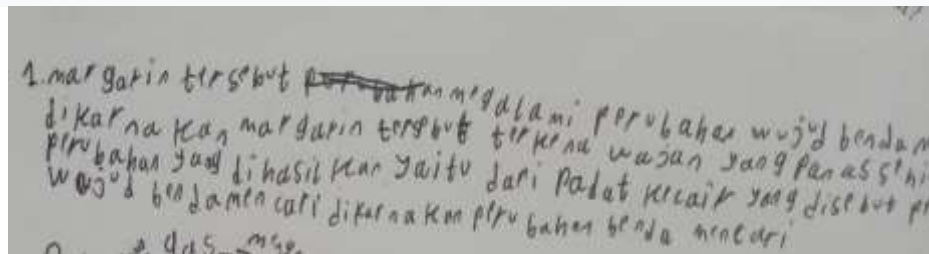 1. margarin tersebut megalami perubahan wujud benda
dikarnakan margarin tersebut terkena wajan yang panas
perubahan yang dihasilkan yaitu dari padat kecair yang disebut
wujud benda mencari dikarnakan perubahan benda mencari
gas